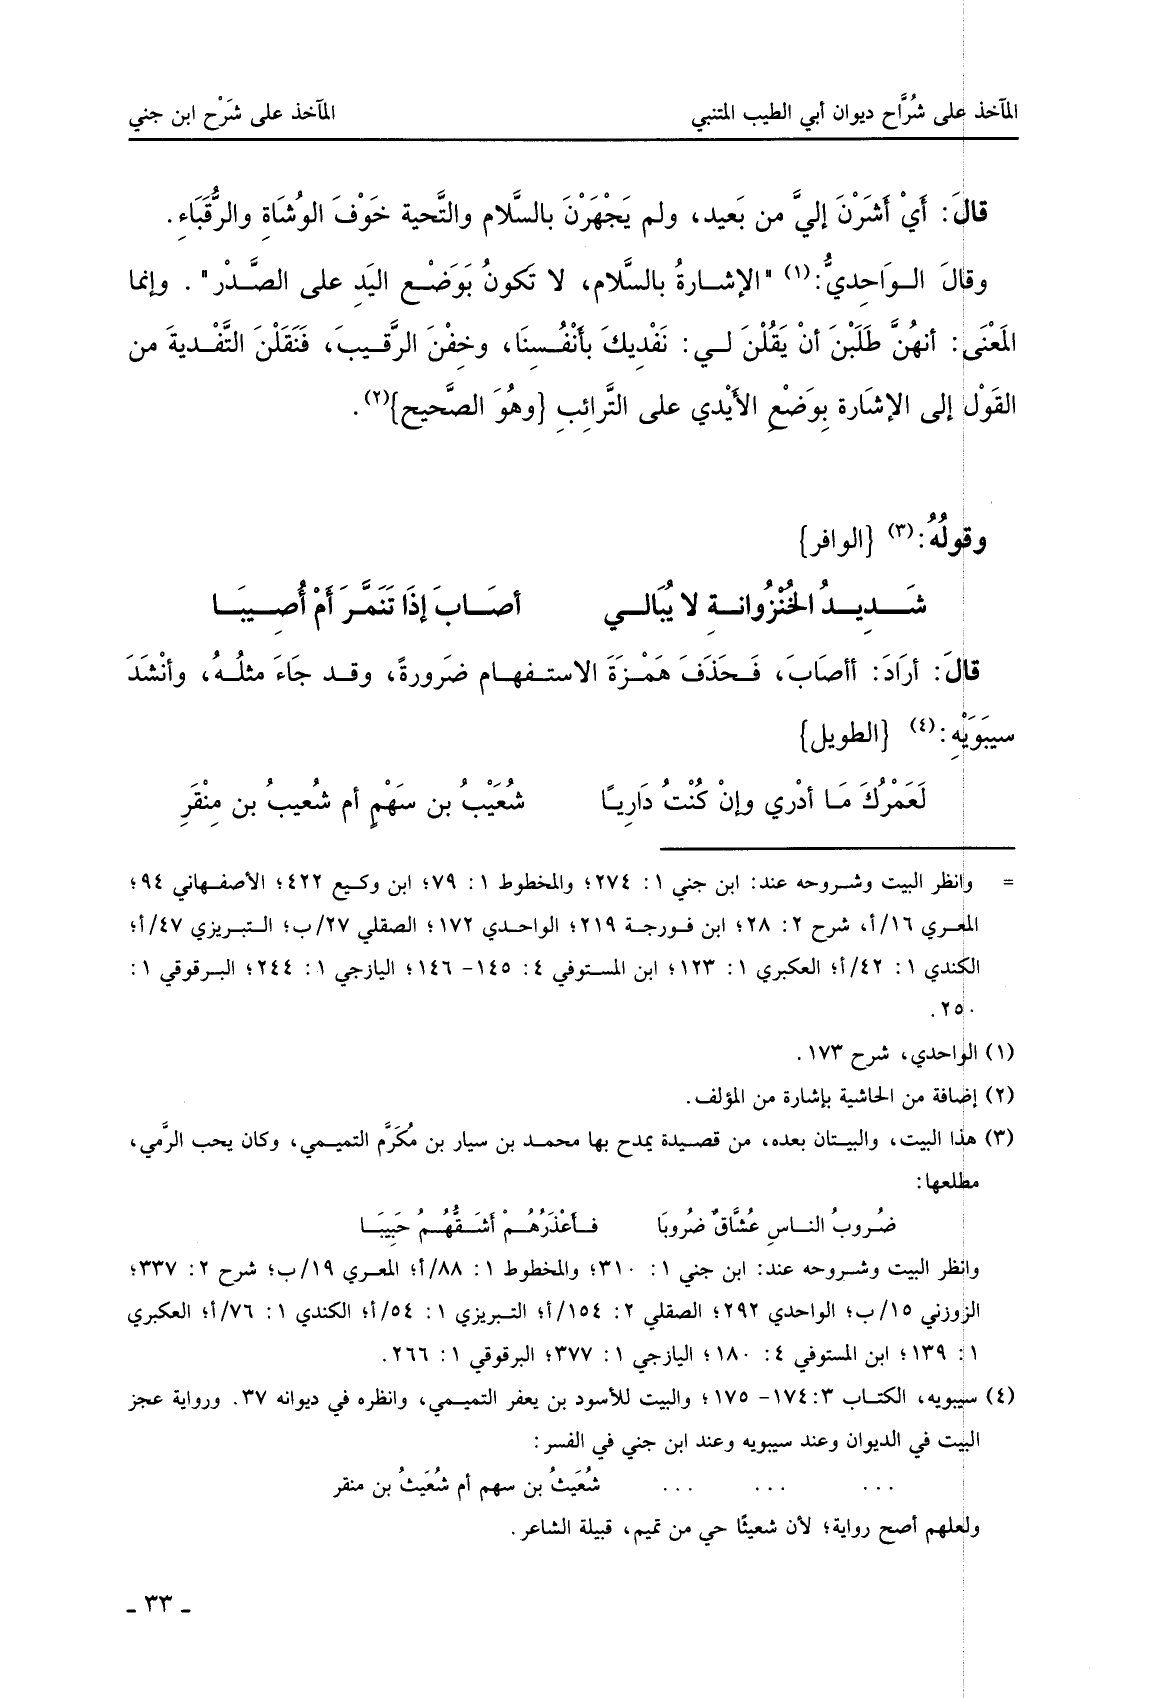 المآخذ على شُرَّاح ديوان أبي الطيب المتنبي المآخذ على شَرْح ابن جني
قالَ: أَيْ أَشَرْنَ إليَّ من بَعيد، ولم يَجْهَرْنَ بالسَّلام والتَّحية خَوْفَ الوُشَاةِ والرُّقَبَاءِ.
وقالَ الواحِديُّ:(١) "الإشارةُ بالسَّلام، لا تَكونُ بَوَضْعِ اليَدِ على الصَّدْر". وإنما
المَعْنَى: أنهُنَّ طَلَبْنَ أنْ يَقُلْنَ لي: نَفْدِيكَ بأَنْفُسِنَا، وخِفْنَ الرَّقيبَ، فَنَقَلْنَ التَّفْديةَ من
القَوْل إلى الإشَارة بِوَضْعِ الأَيْدي على التَّرائِبِ {وهُوَ الصَّحيح}(٢).
وقولُهُ:(٣) {الوافر}
شَديدُ الخُنْزُوانةِ لا يُبَالي أصَابَ إذَا تَنَمَّرَ أمْ أُصِيبَا
قالَ: أرَادَ: أأصَابَ، فَحَذَفَ هَمْزَةَ الاستفهام ضَرورةً، وقد جَاءَ مثلُهُ، وأنْشَدَ
سيبَوَيْهِ:(٤) {الطويل}
لَعَمْرُكَ مَا أدْري وإنْ كُنْتُ دَارِيًا شُعَيْبُ بن سَهْمٍ أم شُعيبُ بن مِنْقَرِ
= وانظر البيت وشروحه عند: ابن جني ١: ٢٧٤؛ والمخطوط ١: ٧٩؛ ابن وكيع ٤٢٢؛ الأصفهاني ٩٤؛
المعري ١٦/أ، شرح ٢: ٢٨؛ ابن فورجة ٢١٩؛ الواحدي ١٧٢؛ الصقلي ٢٧/ب؛ التبريزي ٤٧/أ؛
الكندي ١: ٤٢/أ؛ العكبري ١: ١٢٣؛ ابن المستوفي ٤: ١٤٥- ١٤٦؛ اليازجي ١: ٢٤٤؛ البرقوقي ١:
٢٥٠.
(١) الواحدي، شرح ١٧٣.
(٢) إضافة من الحاشية بإشارة من المؤلف.
(٣) هذا البيت، والبيتان بعده، من قصيدة يمدح بها محمد بن سيار بن مُكَرَّم التميمي، وكان يحب الرَّمي،
مطلعها:
ضُروبُ الناسِ عُشَّاقٌ ضُروبَا فأَعْذَرُهُمْ أَشَفُّهُمُ حَبِيبَا
وانظر البيت وشروحه عند: ابن جني ١: ٣١٠؛ والمخطوط ١: ٨٨/أ؛ المعري ١٩/ب؛ شرح ٢: ٣٣٧؛
الزوزني ١٥/ب؛ الواحدي ٢٩٢؛ الصقلي ٢: ١٥٤/أ؛ التبريزي ١: ٥٤/أ؛ الكندي ١: ٧٦/أ؛ العكبري
١: ١٣٩؛ ابن المستوفي ٤: ١٨٠؛ اليازجي ١: ٣٧٧؛ البرقوقي ١: ٢٦٦.
(٤) سيبويه، الكتاب ٣: ١٧٤- ١٧٥؛ والبيت للأسود بن يعفر التميمي، وانظره في ديوانه ٣٧. ورواية عجز
البيت في الديوان وعند سيبويه وعند ابن جني في الفسر:
... ... ... شُعَيثُ بن سهم أم شُعَيثُ بن منقر
ولعلهم أصح رواية؛ لأن شعيثًا حي من تميم، قبيلة الشاعر.
ـ ٣٣ ـ